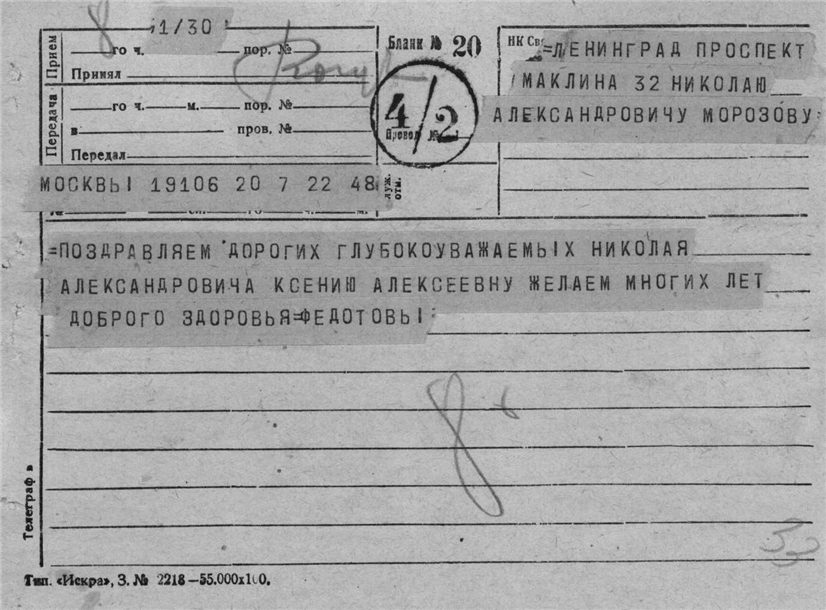 8 1/30
Прием
го ч. пор. №
Принял
Передача
го ч. м. пор. №
в пров. №
Передал
Бланк № 20
4/2
Провод №
НК Свя
=ЛЕНИНГРАД ПРОСПЕКТ
МАКЛИНА 32 НИКОЛАЮ
АЛЕКСАНДРОВИЧУ МОРОЗОВУ=
МОСКВЫ 19106 20 7 22 48
служ. отм.
=ПОЗДРАВЛЯЕМ ДОРОГИХ ГЛУБОКОУВАЖАЕМЫХ НИКОЛАЯ
АЛЕКСАНДРОВИЧА КСЕНИЮ АЛЕКСЕЕВНУ ЖЕЛАЕМ МНОГИХ ЛЕТ
ДОБРОГО ЗДОРОВЬЯ=ФЕДОТОВЫ
8
33
Телеграф в
Тип. «Искра», З. № 2218—55.000х100.